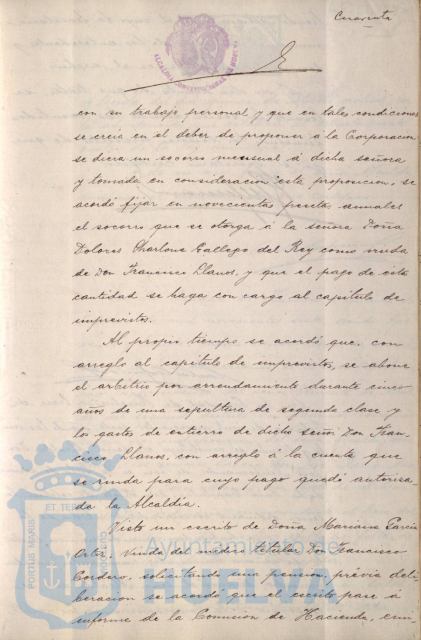 Cuarenta
ALCALDIA CONSTITUCIONAL DE HUELVA
con su trabajo personal y que en tales condiciones
se creia en el deber de proponer á la Corporacion
se diera un socorro mensual á dicha señora
y tomada en consideracion esta proposicion, se
acordó fijar en novecientas pesetas anuales
el socorro que se otorga á la señora Doña
Dolores Charlone Gallego del Rey como viuda
de Don Francisco Llanos, y que el pago de esta
cantidad se haga con cargo al capitulo de
imprevistos.
Al propio tiempo se acordó que, con
arreglo al capitulo de imprevistos, se abone
el arbitrio por arrendamiento durante cinco
años de una sepultura de segunda clase y
los gastos de entierro de dicho señor Don Fran-
cisco Llanos, con arreglo á la cuenta que
se rinda para cuyo pago quedó autoriza-
da la Alcaldia.
Visto un escrito de Doña Mariana Garcia
Ortiz, Viuda del medico titular Don Francisco
Cordero, solicitando una pension, prévia deli-
beracion se acordó que el escrito pase á
informe de la Comision de Hacienda, cum-
PORTUS MARIS
ET TERRÆ
CUSTODIA
Ayuntamiento de
HUELVA